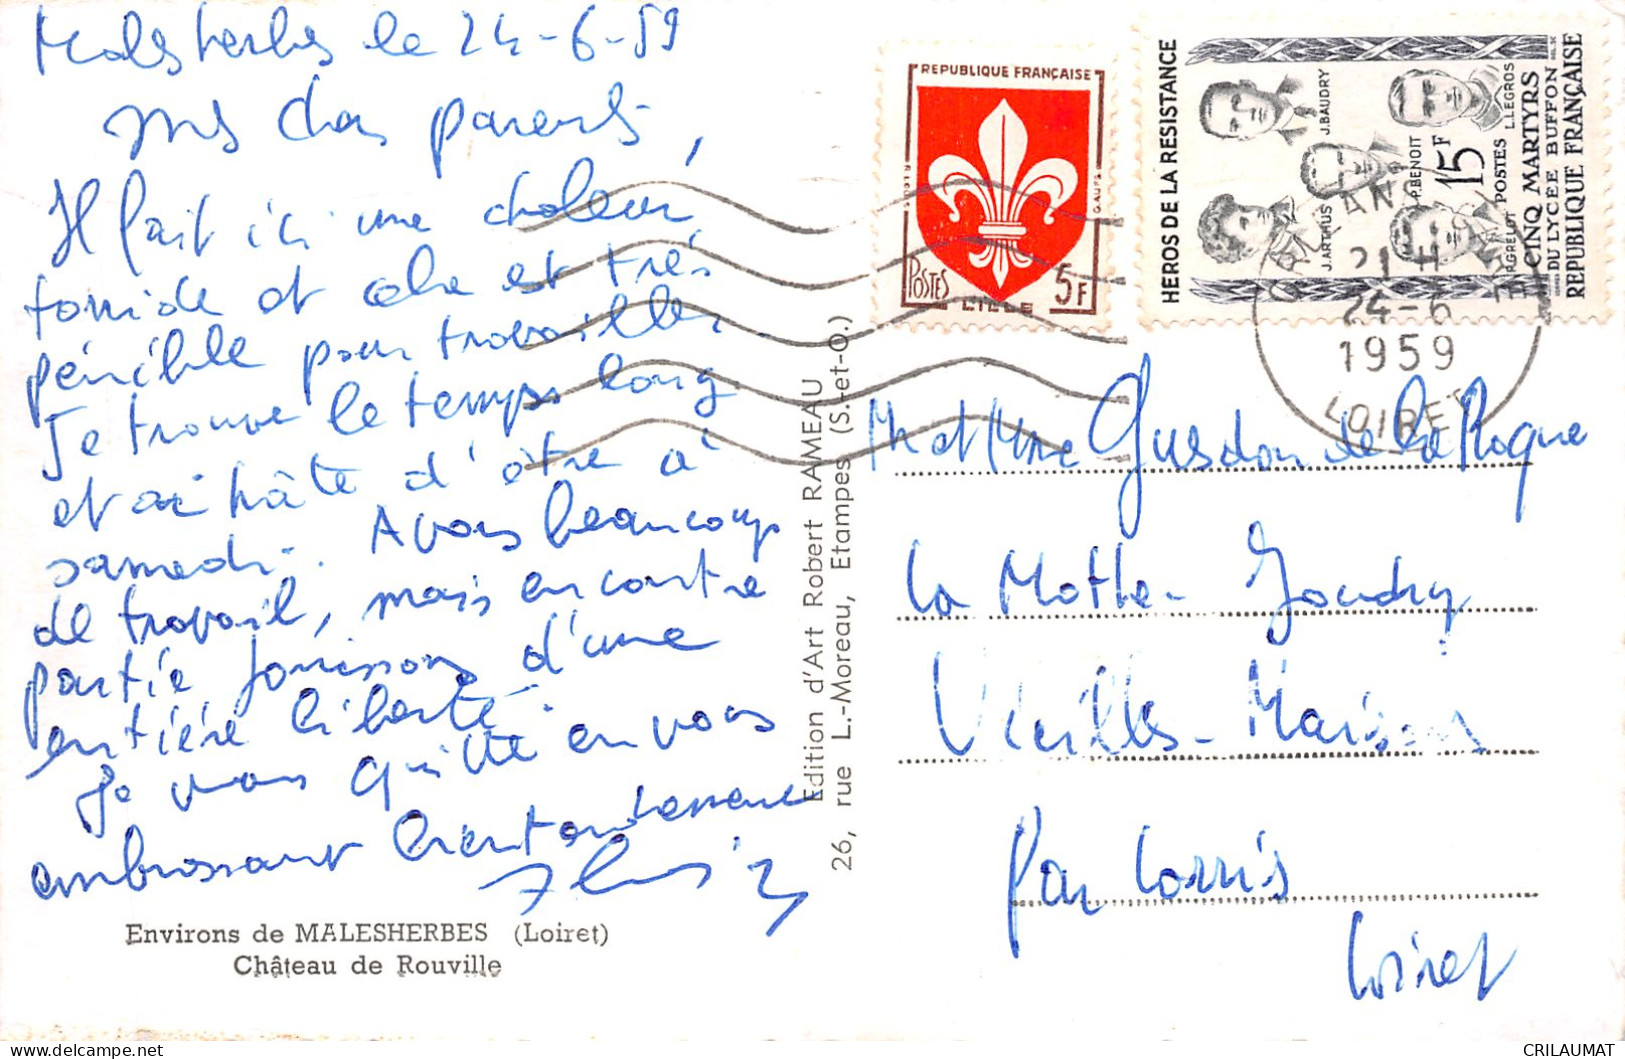 Malesherbes le 24-6-59
mes chers parents,
Il fait ici une chaleur
torride et cela est très
pénible pour travailler.
Je trouve le temps long
et ai hâte d'être à
samedi. Avons beaucoup
de travail, mais en contre
partie jouissons d'une
entière liberté.
Je vous quitte en vous
embrassant
Environs de MALESHERBES (Loiret)
Château de Rouville
Edition d'Art Robert RAMEAU
26, rue L.-Moreau, Etampes (S.-et-O.)
REPUBLIQUE FRANÇAISE
POSTES
5F
LILLE
HEROS DE LA RESISTANCE
J.BAUDRY
L.LEGROS
P.BENOIT
J.ARTHUS
P.GRELOT
15F
POSTES
CINQ MARTYRS
DU LYCÉE BUFFON
REPUBLIQUE FRANÇAISE
21 H
24-6
1959
LOIRET
M et Mme Guesdon de la Roque
La Motte Joudry
Vieilles-Maisons
Par Lorris
Loiret
CRILAUMAT